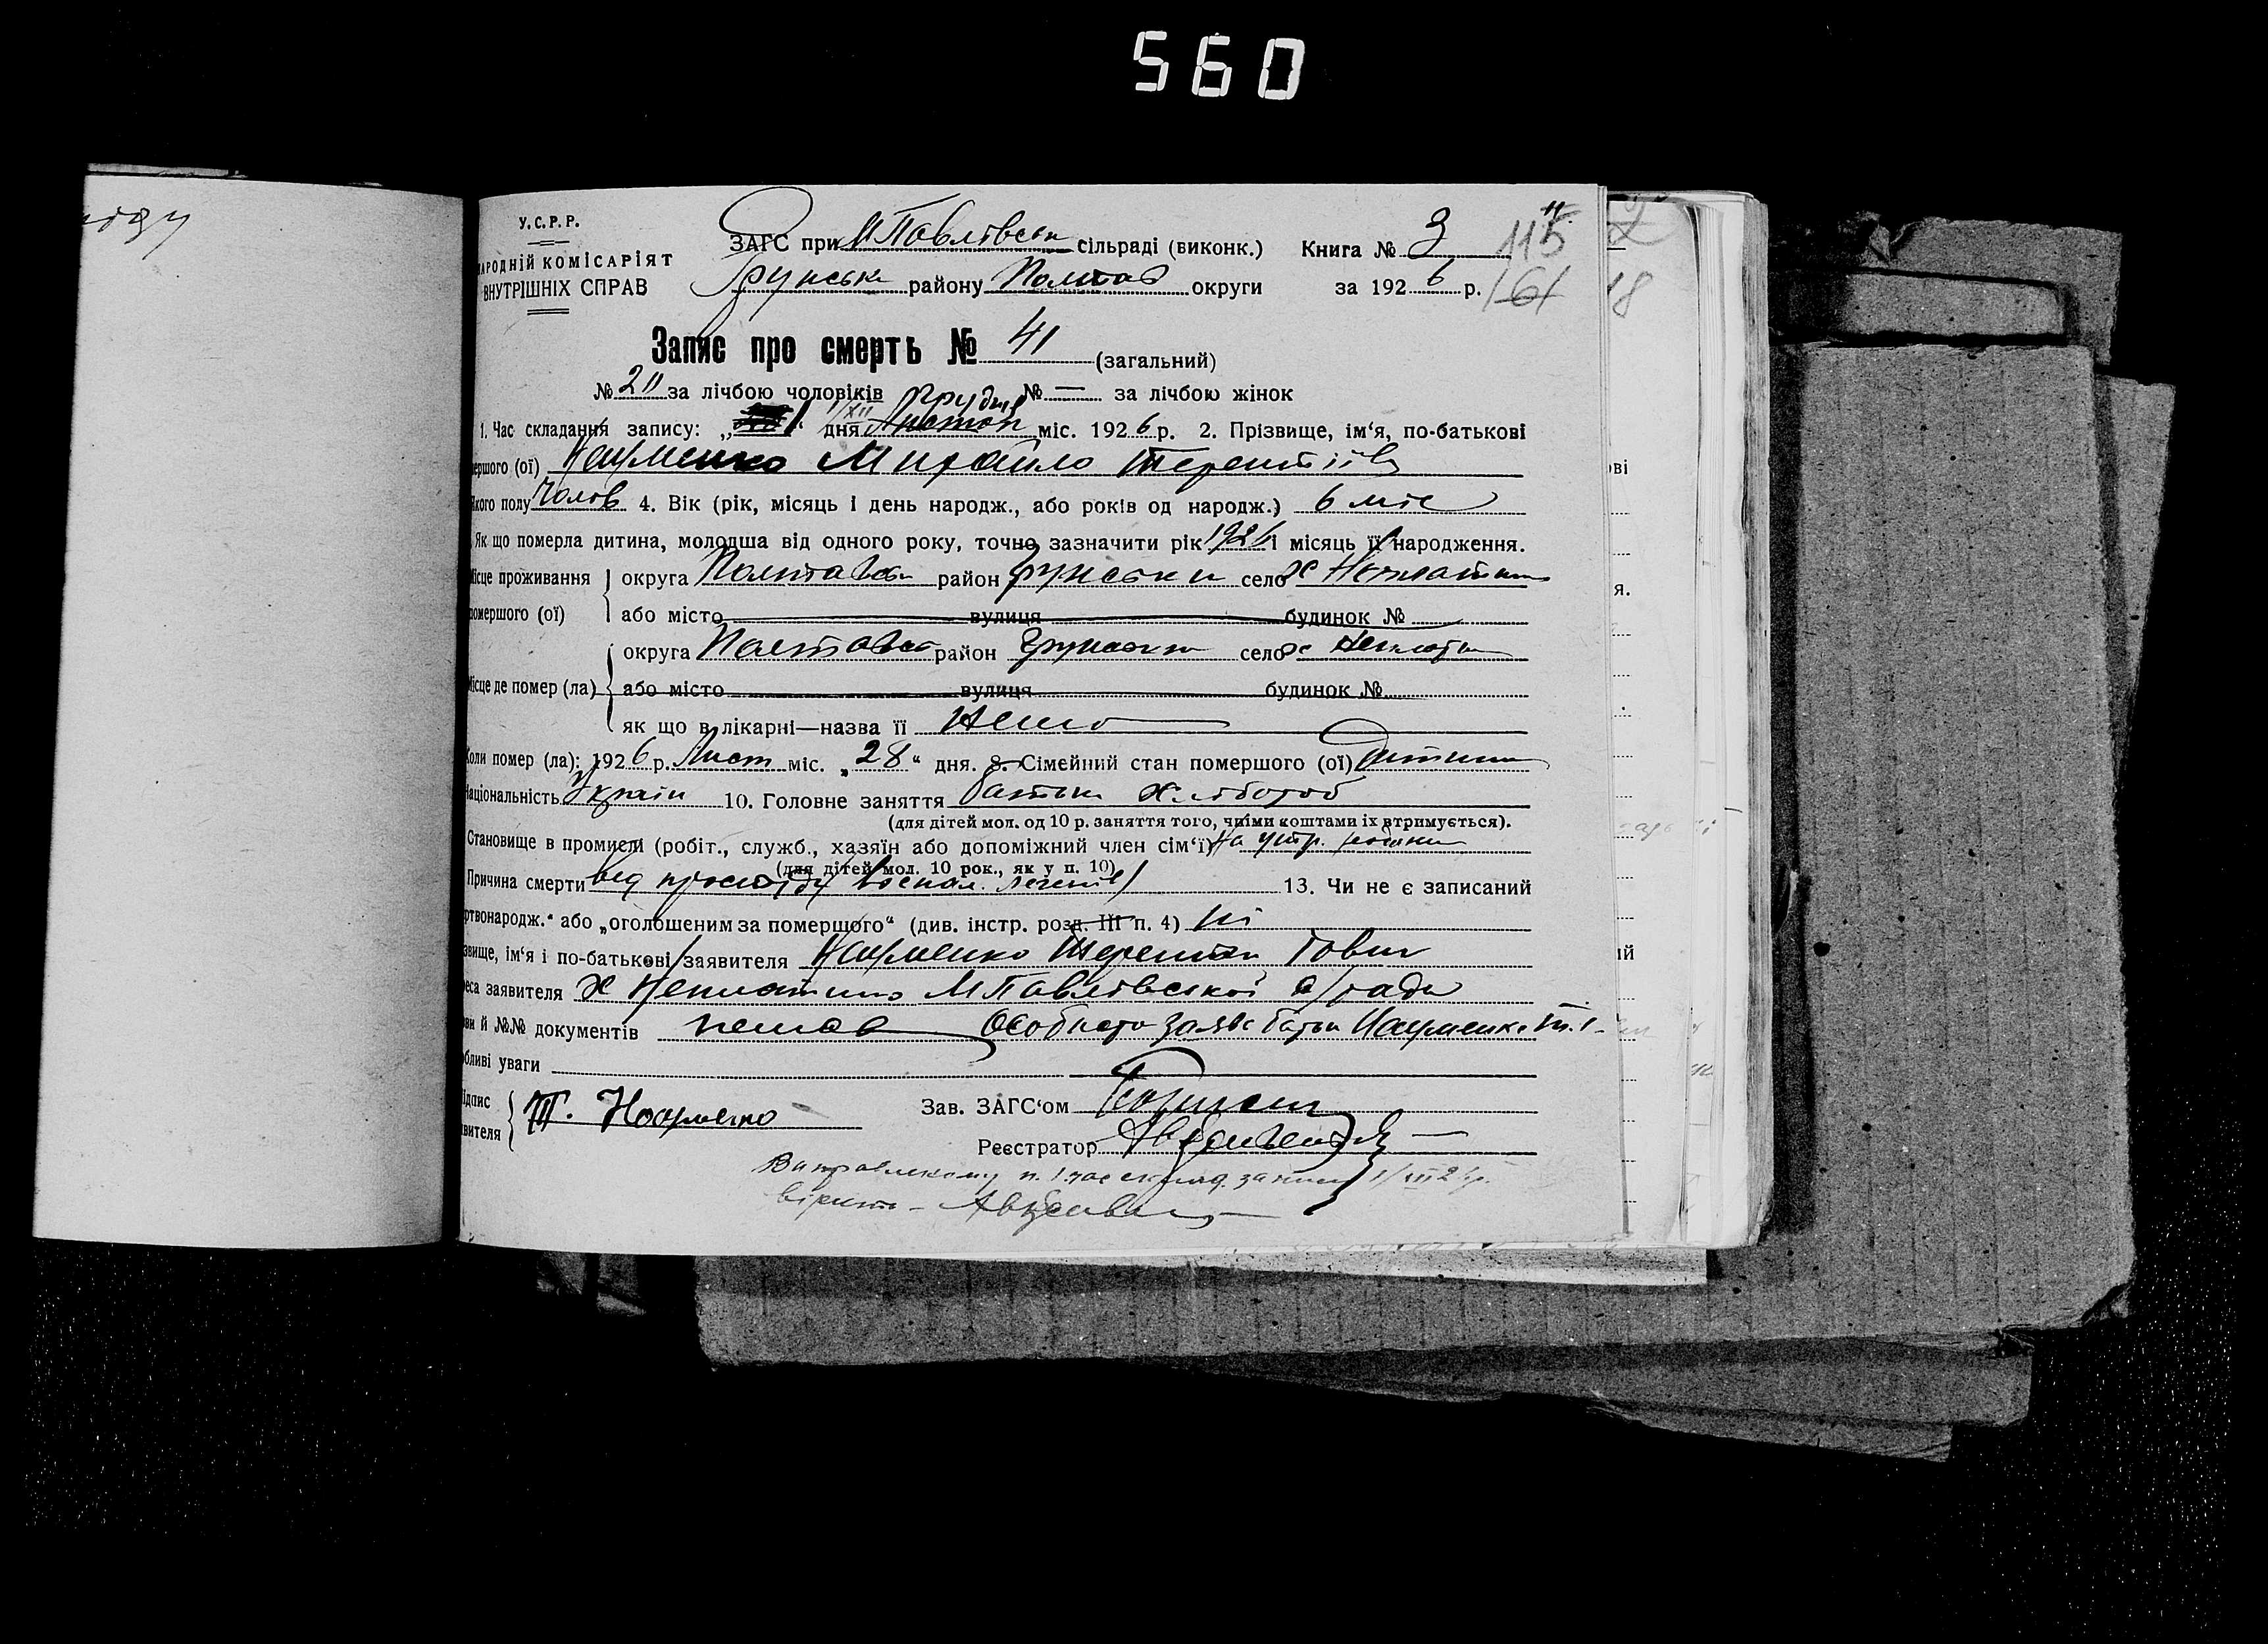 560
У.С.Р.Р.
АРОДНІЙ КОМІСАРІЯТ
ВНУТРІШНІХ СПРАВ
ЗАГС при М Павлівськ сільраді (виконк.) Книга № 3
115
Грунськи району Полтав округи за 1926 р.
161
18
Запис про смерть № 41 (загальний)
№ 211 за лічбою чоловіків № — за лічбою жінок
1/XII Грудня
1. Час складання запису: „ 1“ дня Листоп міс. 1926 р. 2. Прізвище, ім‘я, по-батькові
мершого (ої) Науменко Михайло Терентіїв
якого полу Чолов 4. Вік (рік, місяць і день народж., або років од народж.) 6 міс
Як що померла дитина, молодша від одного року, точно зазначити рік 1926 і місяць її народження.
Місце проживання округа Полтавськ район Грунськи село х
помершого (ої) або місто вулиця будинок №
округа Полтавськ район Грунськи село х
Місце де помер (ла) або місто вулиця будинок №
як що в лікарні—назва її Немо
Коли помер (ла): 1926 р. Лист міс. „28“ дня. 8. Сімейний стан помершого (ої) Дитина
Національність Україн 10. Головне заняття батьки Хлібороб
(для дітей мол. од 10 р. заняття того, чиїми коштами їх втримується).
Становище в промислі (робіт., служб., хазяїн або допоміжний член сім‘ї) На утр.
(для дітей мол. 10 рок., як у п. 10)
Причина смерти від простуди воспал. легенів 13. Чи не є записаний
ртвонародж.“ або „оголошеним за померщого“ (див. інстр. розд. III п. 4) Ні
звище, ім‘я і по-батькові заявителя Науменко Терентій Іович
реса заявителя х М Павлівської с/ради
ви й №№ документів немає Особисто заяв батьк Науменко Т.І.
бливі уваги
підпис
явителя Т. Науменко
Зав. ЗАГС‘ом
Реєстратор
Виправленому п. 1 час склад. запису 1/XII 26 р.
вірити –